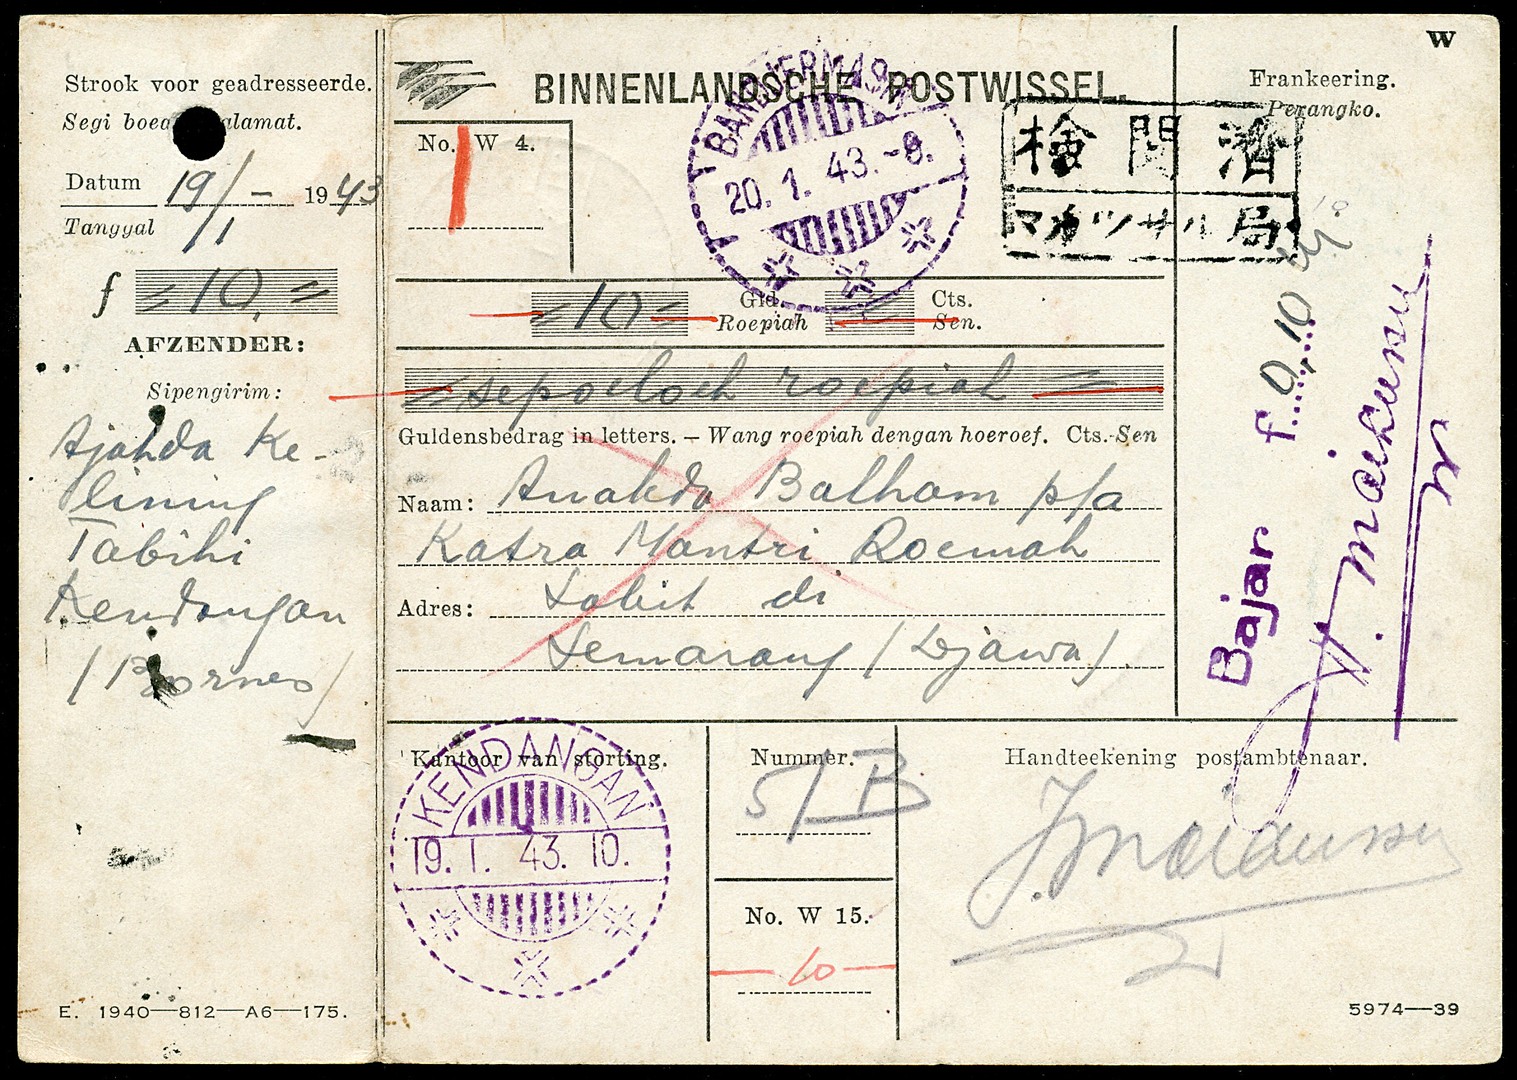 W
Strook voor geadresseerde.
Segi boea alamat.
Datum 19/1 - 1943
Tanggal
f = 10, =
AFZENDER:
Sipengirim:
Ke-
lining
Tabihi
Kendangan
/ Borneo /
E. 1940—812—A6—175.
BINNENLANDSCHE POSTWISSEL.
No. W 4.
1
BANDJERMASIN
20. 1. 43.-8.
Frankeering.
Perangko.
検閲済
マカッサル局
= 10 = Gld. Cts.
Roepiah Sen.
= sepoeloeh roepiah =
Guldensbedrag in letters. — Wang roepiah dengan hoeroef. Cts.-Sen
Naam: Balham p/a
Katra Mantri Roemah
Adres: Sakit di
Semarang / Djawa /.
Bajar f. 0,10
Kantoor van storting.
KENDANGAN
19. 1. 43. 10.
Nummer.
5/B
No. W 15.
— 10 —
Handteekening postambtenaar.
5974—39